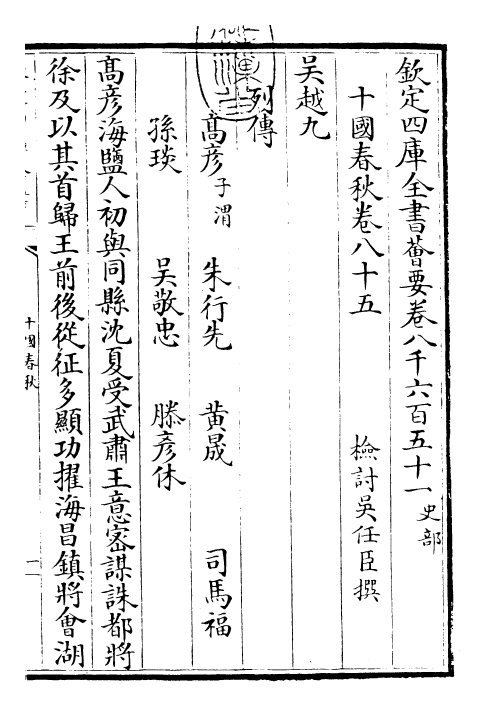 欽定四庫全書薈要卷八千六百五十一 史部
十國春秋卷八十五
檢討吳任臣撰
吳越九
列傳
高彦 子渭 朱行先 黄晟 司馬福
孫琰 吳敬忠 滕彦休
高彦海鹽人初與同縣沈夏受武肅王意宻謀誅都將
徐及以其首歸王前後從征多顯功擢海昌鎮將會湖
十國春秋
一